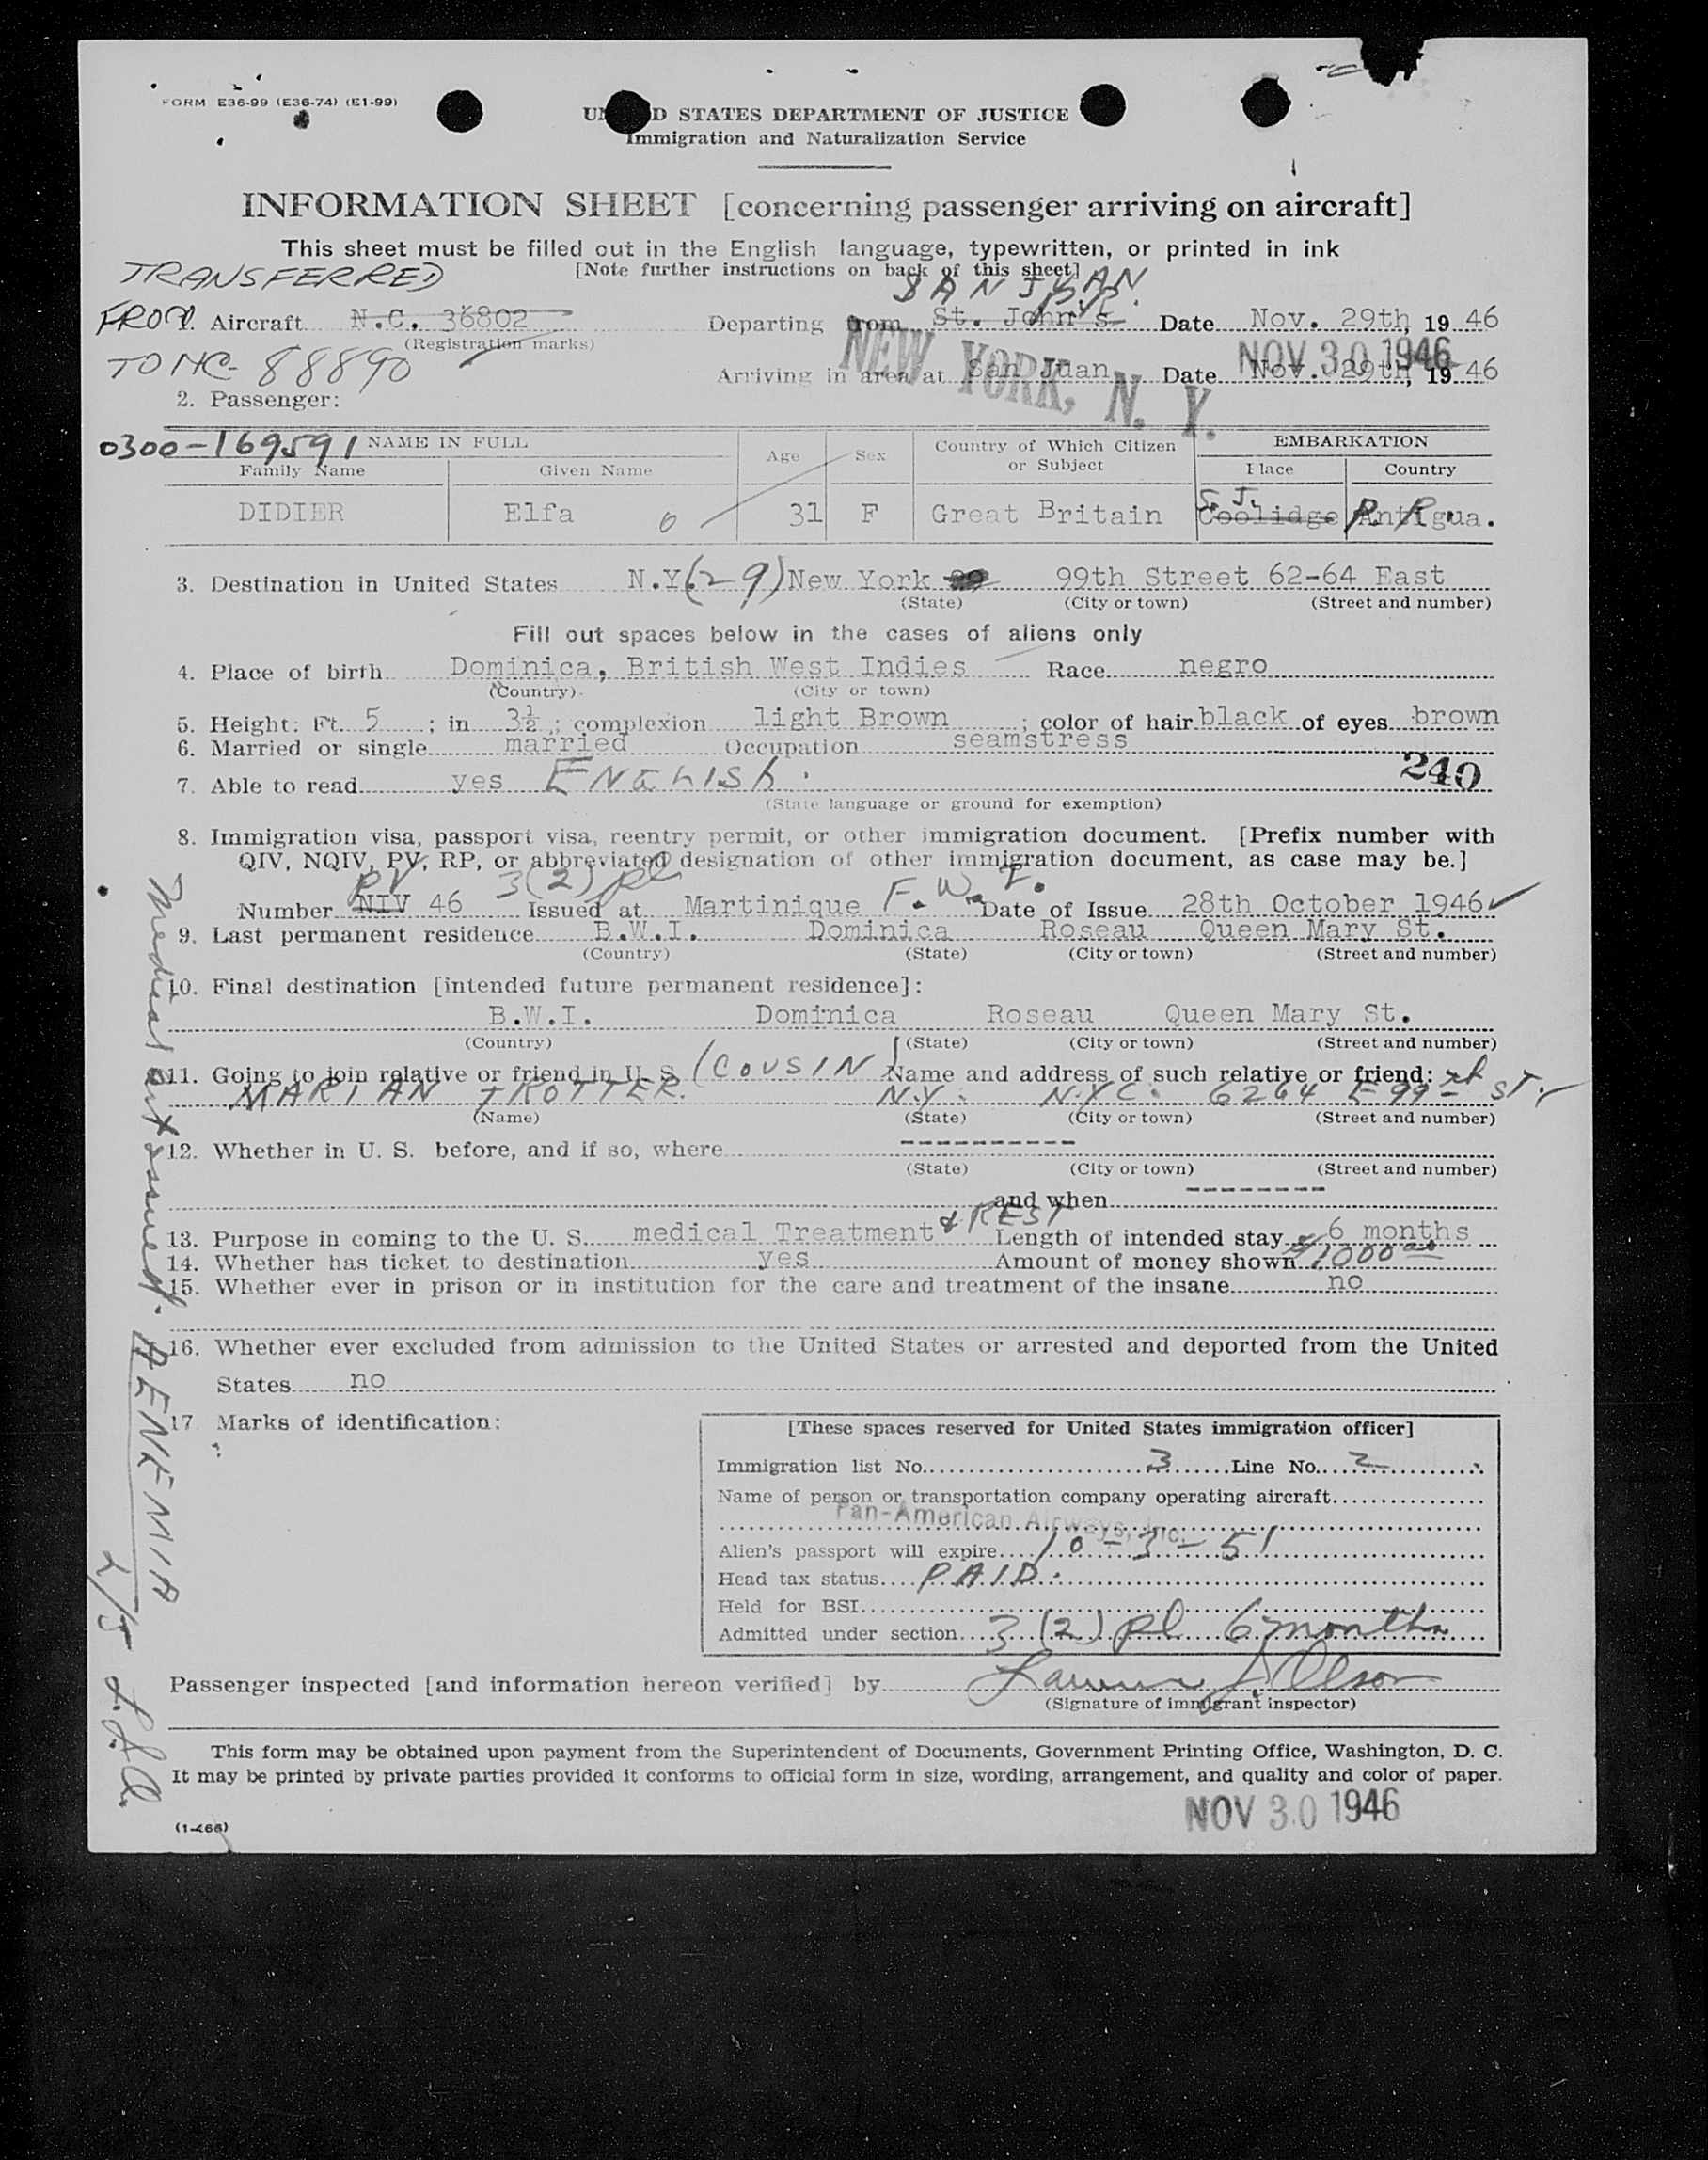 FORM E36-99 (E36-74) (E1-99)
D STATES DEPARTMENT OF JUSTICE
Immigration and Naturalization Service
INFORMATION SHEET [concerning passenger arriving on aircraft]
This sheet must be filled out in the English language, typewritten, or printed in ink
[Note further instructions on back of this sheet]
TRANSFERRED
SAN JUAN P.R.
FROM. Aircraft N.C. 36802 Departing from St. John's Date Nov. 29th, 19 46
(Registration marks)
TO NC- 88890
NEW YORK, N. Y. NOV 30 1946
Arriving in area at San Juan Date Nov. 29th, 19 46
2. Passenger:
0300-169591 NAME IN FULL Age Sex Country of Which Citizen or Subject EMBARKATION
Family Name Given Name Place Country
S. J. P. R.
DIDIER Elfa 31 F Great Britain Coolidge Antigua.
3. Destination in United States N.Y. (29) New York 99th Street 62-64 East
(State) (City or town) (Street and number)
Fill out spaces below in the cases of aliens only
4. Place of birth Dominica, British West Indies Race negro
(Country) (City or town)
5. Height: Ft. 5 ; in 3½ ; complexion light Brown ; color of hair black of eyes brown
6. Married or single married Occupation seamstress
240
7. Able to read yes ENGLISH.
(State language or ground for exemption)
8. Immigration visa, passport visa, reentry permit, or other immigration document. [Prefix number with
QIV, NQIV, PV, RP, or abbreviated designation of other immigration document, as case may be.]
PV 3(2) pl
Number NIV 46 Issued at Martinique F.W.I. Date of Issue 28th October 1946
9. Last permanent residence B.W.I. Dominica Roseau Queen Mary St.
(Country) (State) (City or town) (Street and number)
10. Final destination [intended future permanent residence]:
B.W.I. Dominica Roseau Queen Mary St.
(Country) (State) (City or town) (Street and number)
11. Going to join relative or friend in U. S. (COUSIN) Name and address of such relative or friend:
MARIAN TROTTER. N.Y. N.Y.C. 6264 E 99th ST.
(Name) (State) (City or town) (Street and number)
12. Whether in U. S. before, and if so, where ----------
(State) (City or town) (Street and number)
and when --------
13. Purpose in coming to the U. S. medical Treatment & REST Length of intended stay 6 months
14. Whether has ticket to destination yes Amount of money shown $1000.00
15. Whether ever in prison or in institution for the care and treatment of the insane no
16. Whether ever excluded from admission to the United States or arrested and deported from the United
States no
17 Marks of identification:
[These spaces reserved for United States immigration officer]
Immigration list No. 3 Line No. 2
Name of person or transportation company operating aircraft
Pan-American Airways, Inc.
Alien's passport will expire 10-3-51
Head tax status PAID.
Held for BSI
Admitted under section 3 (2) pl 6 months
Passenger inspected [and information hereon verified] by Lawrence J. Olson
(Signature of immigrant inspector)
Medical cert issued. ANEMIA
This form may be obtained upon payment from the Superintendent of Documents, Government Printing Office, Washington, D. C.
It may be printed by private parties provided it conforms to official form in size, wording, arrangement, and quality and color of paper.
NOV 30 1946
(1-466)